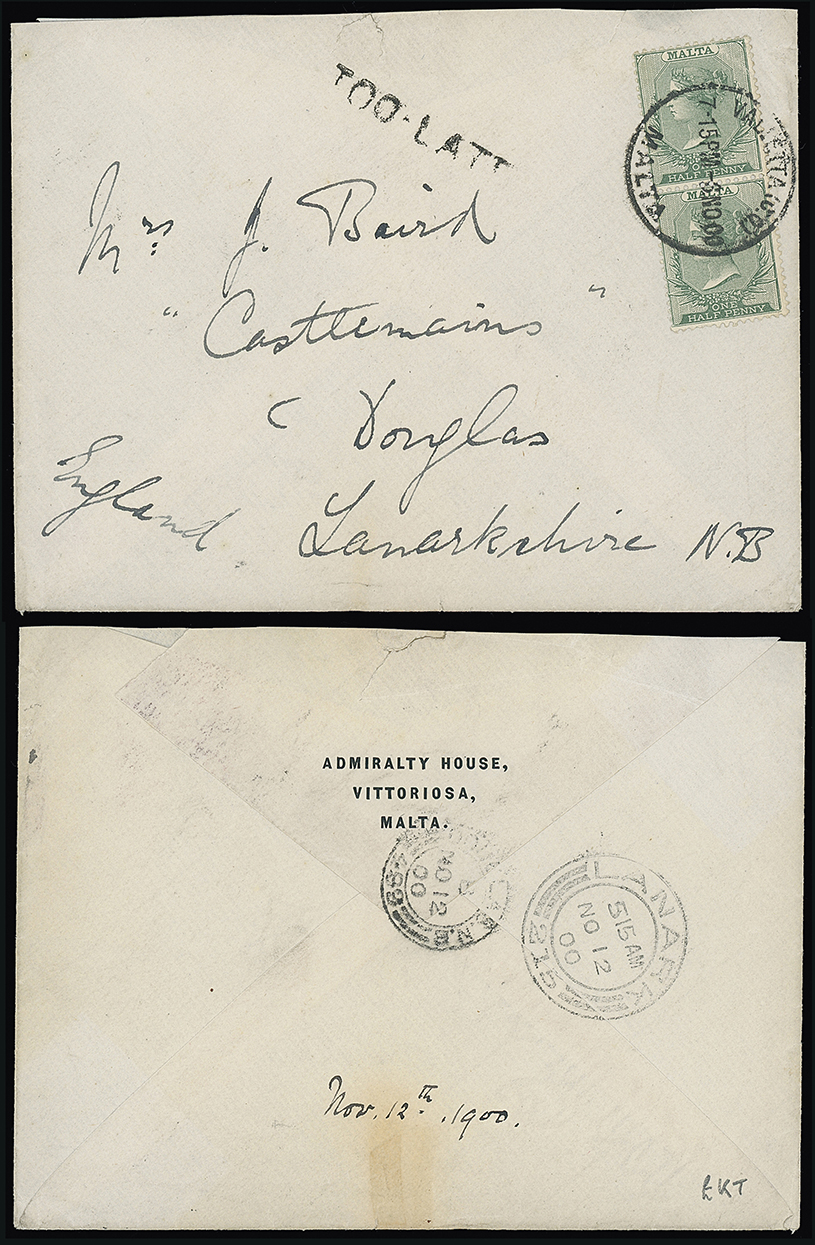 TOO-LATE
MALTA
ONE
HALF PENNY
MALTA
ONE
HALF PENNY
VALLETTA
7-15PM NO.00
MALTA
Mrs. J. Baird
"Castlemains"
Douglas
Lanarkshire N.B
England.
ADMIRALTY HOUSE,
VITTORIOSA,
MALTA.
N.B
NO 12
00
493
LANARK
515AM
NO 12
00
212
Nov. 12th. 1900.
£KT